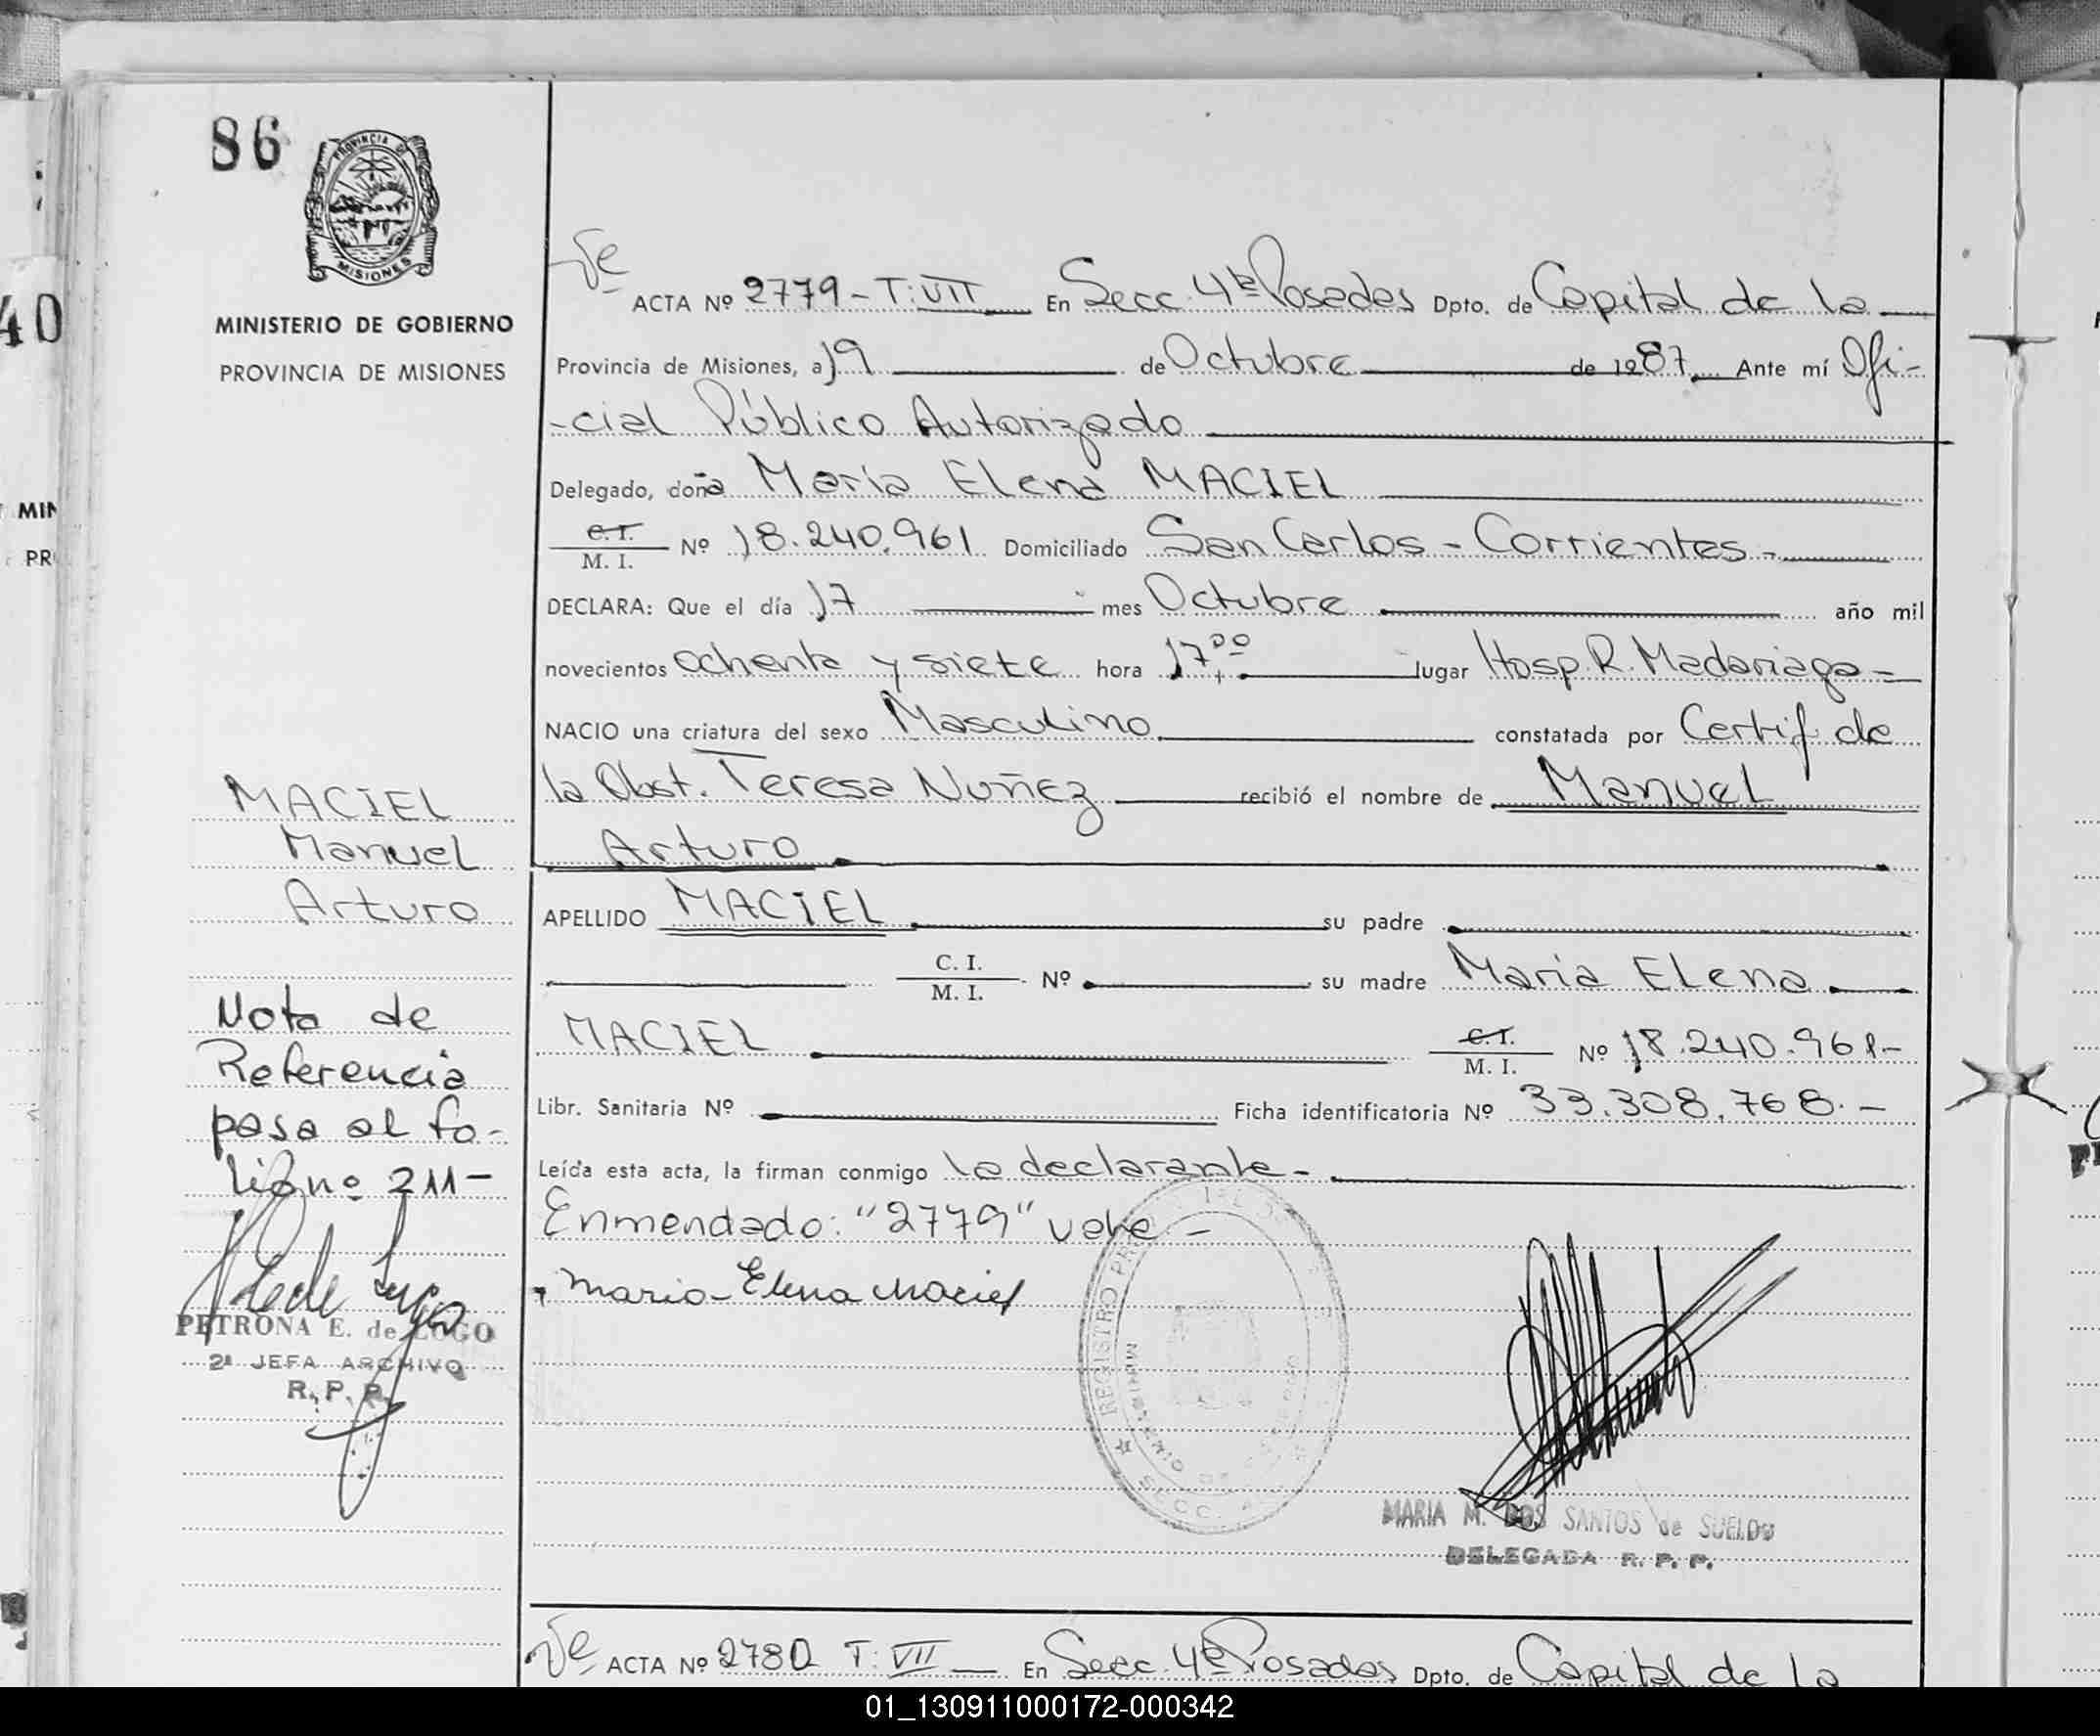 86
PROVINCIA DE
MISIONES
MINISTERIO DE GOBIERNO
PROVINCIA DE MISIONES
ACTA Nº 2779 - T: VII En Secc. 4ta Posadas Dpto. de Capital de la
Provincia de Misiones, a 19 de Octubre de 1987 Ante mí Ofi-
-cial Público Autorizado
Delegado, doña María Elena MACIEL
C.I. M. I. Nº 18.240.961 Domiciliado San Carlos - Corrientes -
DECLARA: Que el día 17 mes Octubre año mil
novecientos ochenta y siete hora 17,00 lugar Hosp. R. Madariaga =
NACIO una criatura del sexo Masculino constatada por Certif. de
la Obst. Teresa Nuñez recibió el nombre de Manuel
Arturo
APELLIDO MACIEL su padre
C. I. M. I. Nº su madre María Elena
MACIEL C.I. M. I. Nº 18.240.961-
Libr. Sanitaria Nº Ficha identificatoria Nº 33.308.768. -
Leída esta acta, la firman conmigo la declarante -
Enmendado: "2779" vale -
Maria Elena Maciel
MARIA M. DOS SANTOS de SUELDO
DELEGADA R. P. P.
MACIEL
Manuel
Arturo
Nota de
Referencia
pasa al fo-
lio nº 211 -
PETRONA E. de LUGO
2ª JEFA ARCHIVO
R. P. P.
ACTA Nº 2780 T: VII En Secc. 4ta Posadas Dpto. de Capital de la
40
MIN
PR
01_130911000172-000342